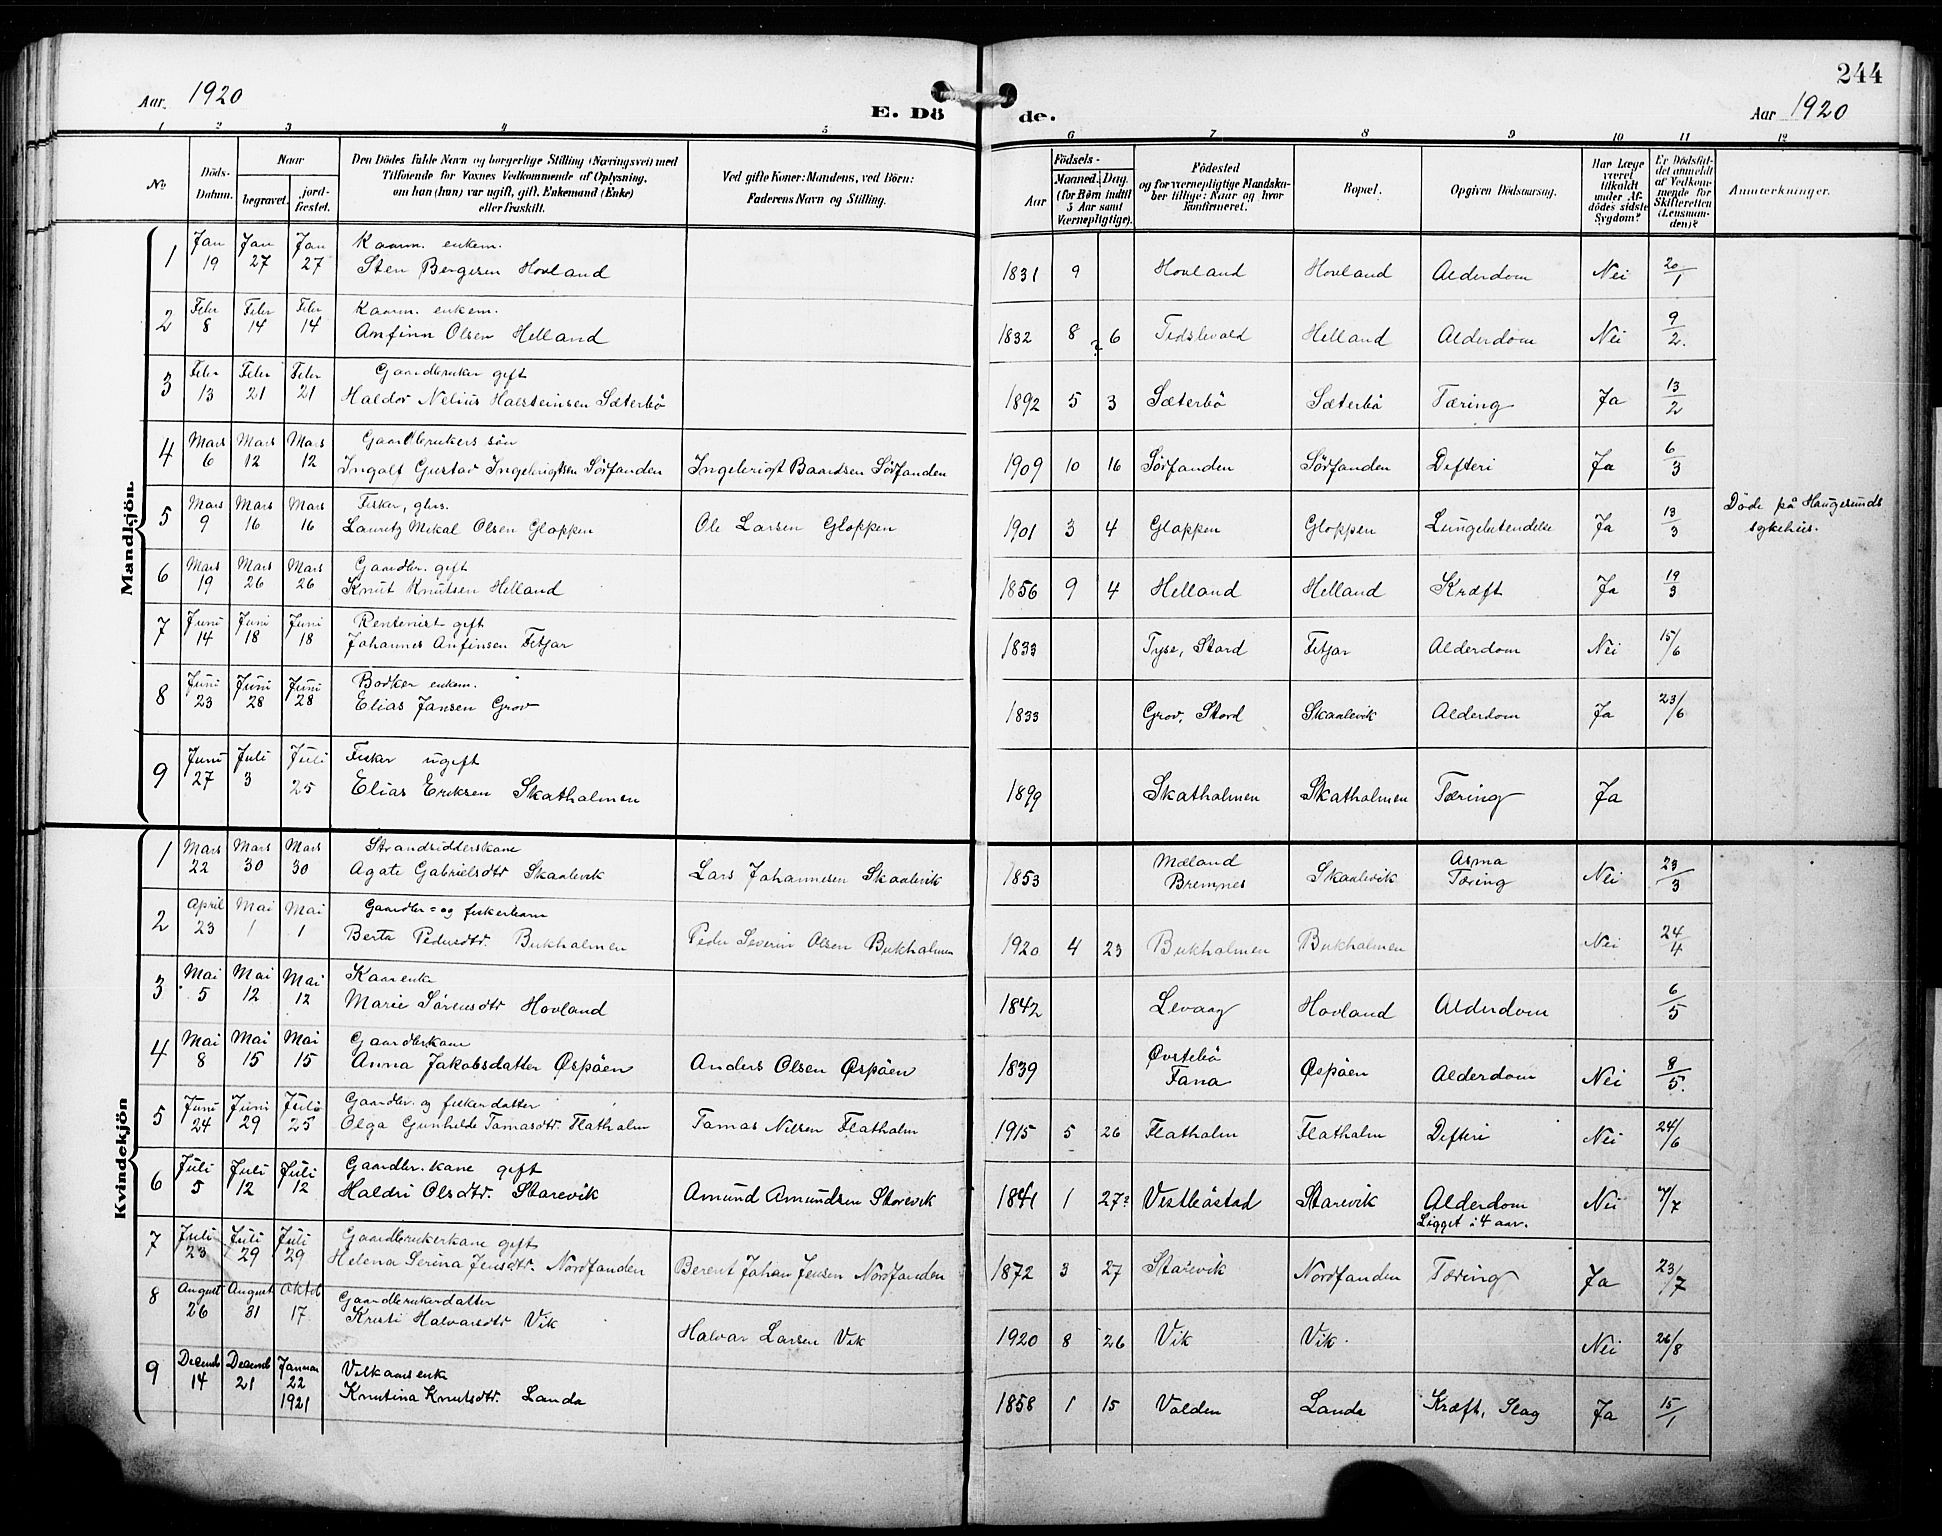 244
Aar. 1920
E. Dö de.
Aar 1920
1 2 3 4 5 6 7 8 9 10 11 12
No. Döds-Datum. Naar begravet. jordfæstet. Den Dödes fulde Navn og borgerlige Stilling (Næringsvei) med Tilföiende for Voxnes Vedkommende af Oplysning, om han (hun) var ugift, gift, Enkemand (Enke) eller fraskilt. Ved gifte Koner: Mandens, ved Börn: Faderens Navn og Stilling. Födsels- Aar Maaned. Dag. (for Börn indtil 5 Aar samt Værnepligtige). Födested og for værnepligtige Mandskaber tillige: Naar og hvor konfirmeret. Bopæl. Opgiven Dödsaarsag. Har Læge været tilkaldt under Afdödes sidste Sygdom? Er Dödsfaldet anmeldt af Vedkommende for Skifteretten (Lensmanden)? Anmærkninger.
Mandkjön.
1 Jan 19 Jan 27 Jan 27 Kaarm. enkem. Sten Bergesen Hovland 1831 9 Hovland Hovland Alderdom Nei 20/1
2 Febr 8 Febr 14 Febr 14 Kaarm. enkem. Anfinn Olsen Helland 1832 8 ? 6 Helland Alderdom Nei 9/2.
3 Febr 13 Febr 21 Febr 21 Gaardbruker gift Haldor Nelius Halsteinsen Sæterbö 1892 5 3 Sæterbö Sæterbö Tæring Ja 13/2
4 Mars 6 Mars 12 Mars 12 Gaardbrukers sön Ingolf Gustav Ingebrigtsen Sörfonden Ingebrigt Baardsen Sörfonden 1909 10 16 Sörfonden Sörfonden Difteri Ja 6/3
5 Mars 9 Mars 16 Mars 16 Fisker, gbrs. Lauritz Mikal Olsen Gloppen Ole Larsen Gloppen 1901 3 4 Gloppen Gloppen Lungebetendelse Ja 13/3 Döde på Haugesunds sykehus.
6 Mars 19 Mars 26 Mars 26 Gaardbr. gift Knut Knutsen Helland 1856 9 4 Helland Helland Kræft Ja 19/3
7 Juni 14 Juni 18 Juni 18 Rentenist gift Johannes Anfinsen Fitjar 1833 Tyse, Stord Fitjar Alderdom Nei 15/6
8 Juni 23 Juni 28 Juni 28 Bödker enkem. Elias Jansen Grov 1833 Grov, Stord Skaalevik Alderdom Ja 23/6
9 Juni 27 Juli 3 Juli 25 Fisker ugift Elias Eriksen Skatholmen 1899 Skatholmen Skatholmen Tæring Ja
Kvindekjön
1 Mars 22 Mars 30 Mars 30 Strandsidderskone Agate Gabrielsdtr Skaalevik Lars Johannesen Skaalevik 1853 Mæland Bremnes Skaalevik Asma Tæring Nei 23/3
2 April 23 Mai 1 Mai 1 Gaardbr= og fiskerbarn Berta Pedersdtr. Bukholmen Peder Severin Olsen Bukholmen 1920 4 23 Bukholmen Bukholmen Nei 24/4
3 Mai 5 Mai 12 Mai 12 Kaarenke Marie Sörensdtr Hovland 1842 Levaag Hovland Alderdom 6/5
4 Mai 8 Mai 15 Mai 15 Gaardbrkone Anna Jakobsdatter Øspöen Anders Olsen Øspöen 1839 Øvstebö Fana Øspöen Alderdom Nei 8/5.
5 Juni 24 Juni 29 Juli 25 Gaardbr. og fiskerdatter Olga Gunhilde Tomasdtr. Flatholm Tomas Nilsen Flatholm 1915 5 26 Flatholm Flatholm Difteri Nei 24/6
6 Juli 5 Juli 12 Juli 12 Gaardbr. kone gift Haldri Olsdtr. Storevik Amund Amundsen Storevik 1841 1 27? Vestböstad Storevik Alderdom Ligget i 4 aar. Nei 7/7
7 Juli 23 Juli 29 Juli 29 Gaardbrukerkone gift Helena Serina Jensdtr. Nordfonden Berent Johan Jensen Nordfonden 1872 3 27 Storevik Nordfonden Tæring Ja 23/7
8 August 26 August 31 Oktob 17 Gaardbrukerdatter Kristi Halvorsdtr Vik Halvor Larsen Vik 1920 8 26 Vik Vik. Nei 26/8
9 Decemb 14 Decemb 21 Januar 22 1921 Vilkaarsenk Knutina Knutsdtr. Landa 1858 1 15 Valden Landa Kræft, Slag Ja 15/1